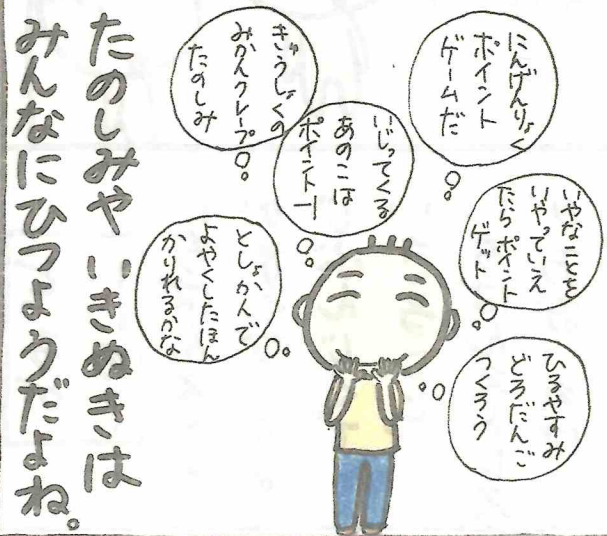 にんげんりょく
ポイント
ゲームだ
いやなことを
いやっていえ
たらポイント
ゲット
ひるやすみ
どろだんご
つくろう
いじってくる
あのこは
ポイント−1
きゅうしょくの
みかんクレープ
たのしみ
としょかんで
よやくしたほん
かりれるかな
たのしみや いきぬきは
みんなにひつようだよね。